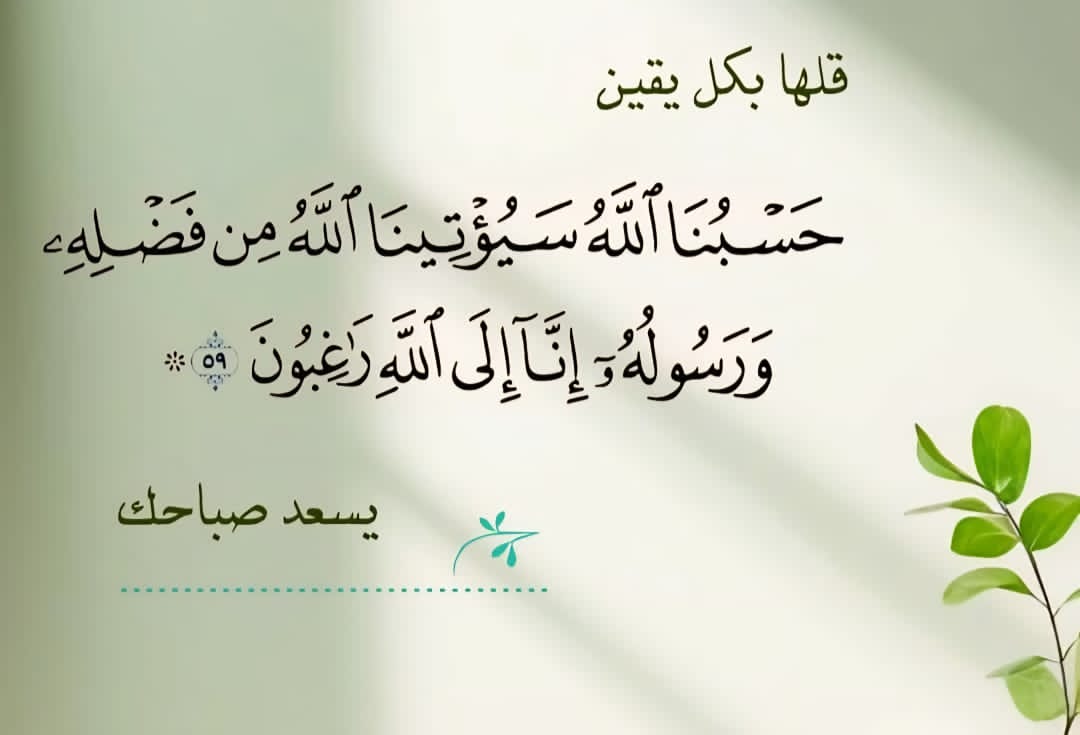 قلها بكل يقين
حَسْبُنَا ٱللَّهُ سَيُؤْتِينَا ٱللَّهُ مِن فَضْلِهِۦ
وَرَسُولُهُۥٓ إِنَّآ إِلَى ٱللَّهِ رَٰغِبُونَ ٥٩ *
يسعد صباحك